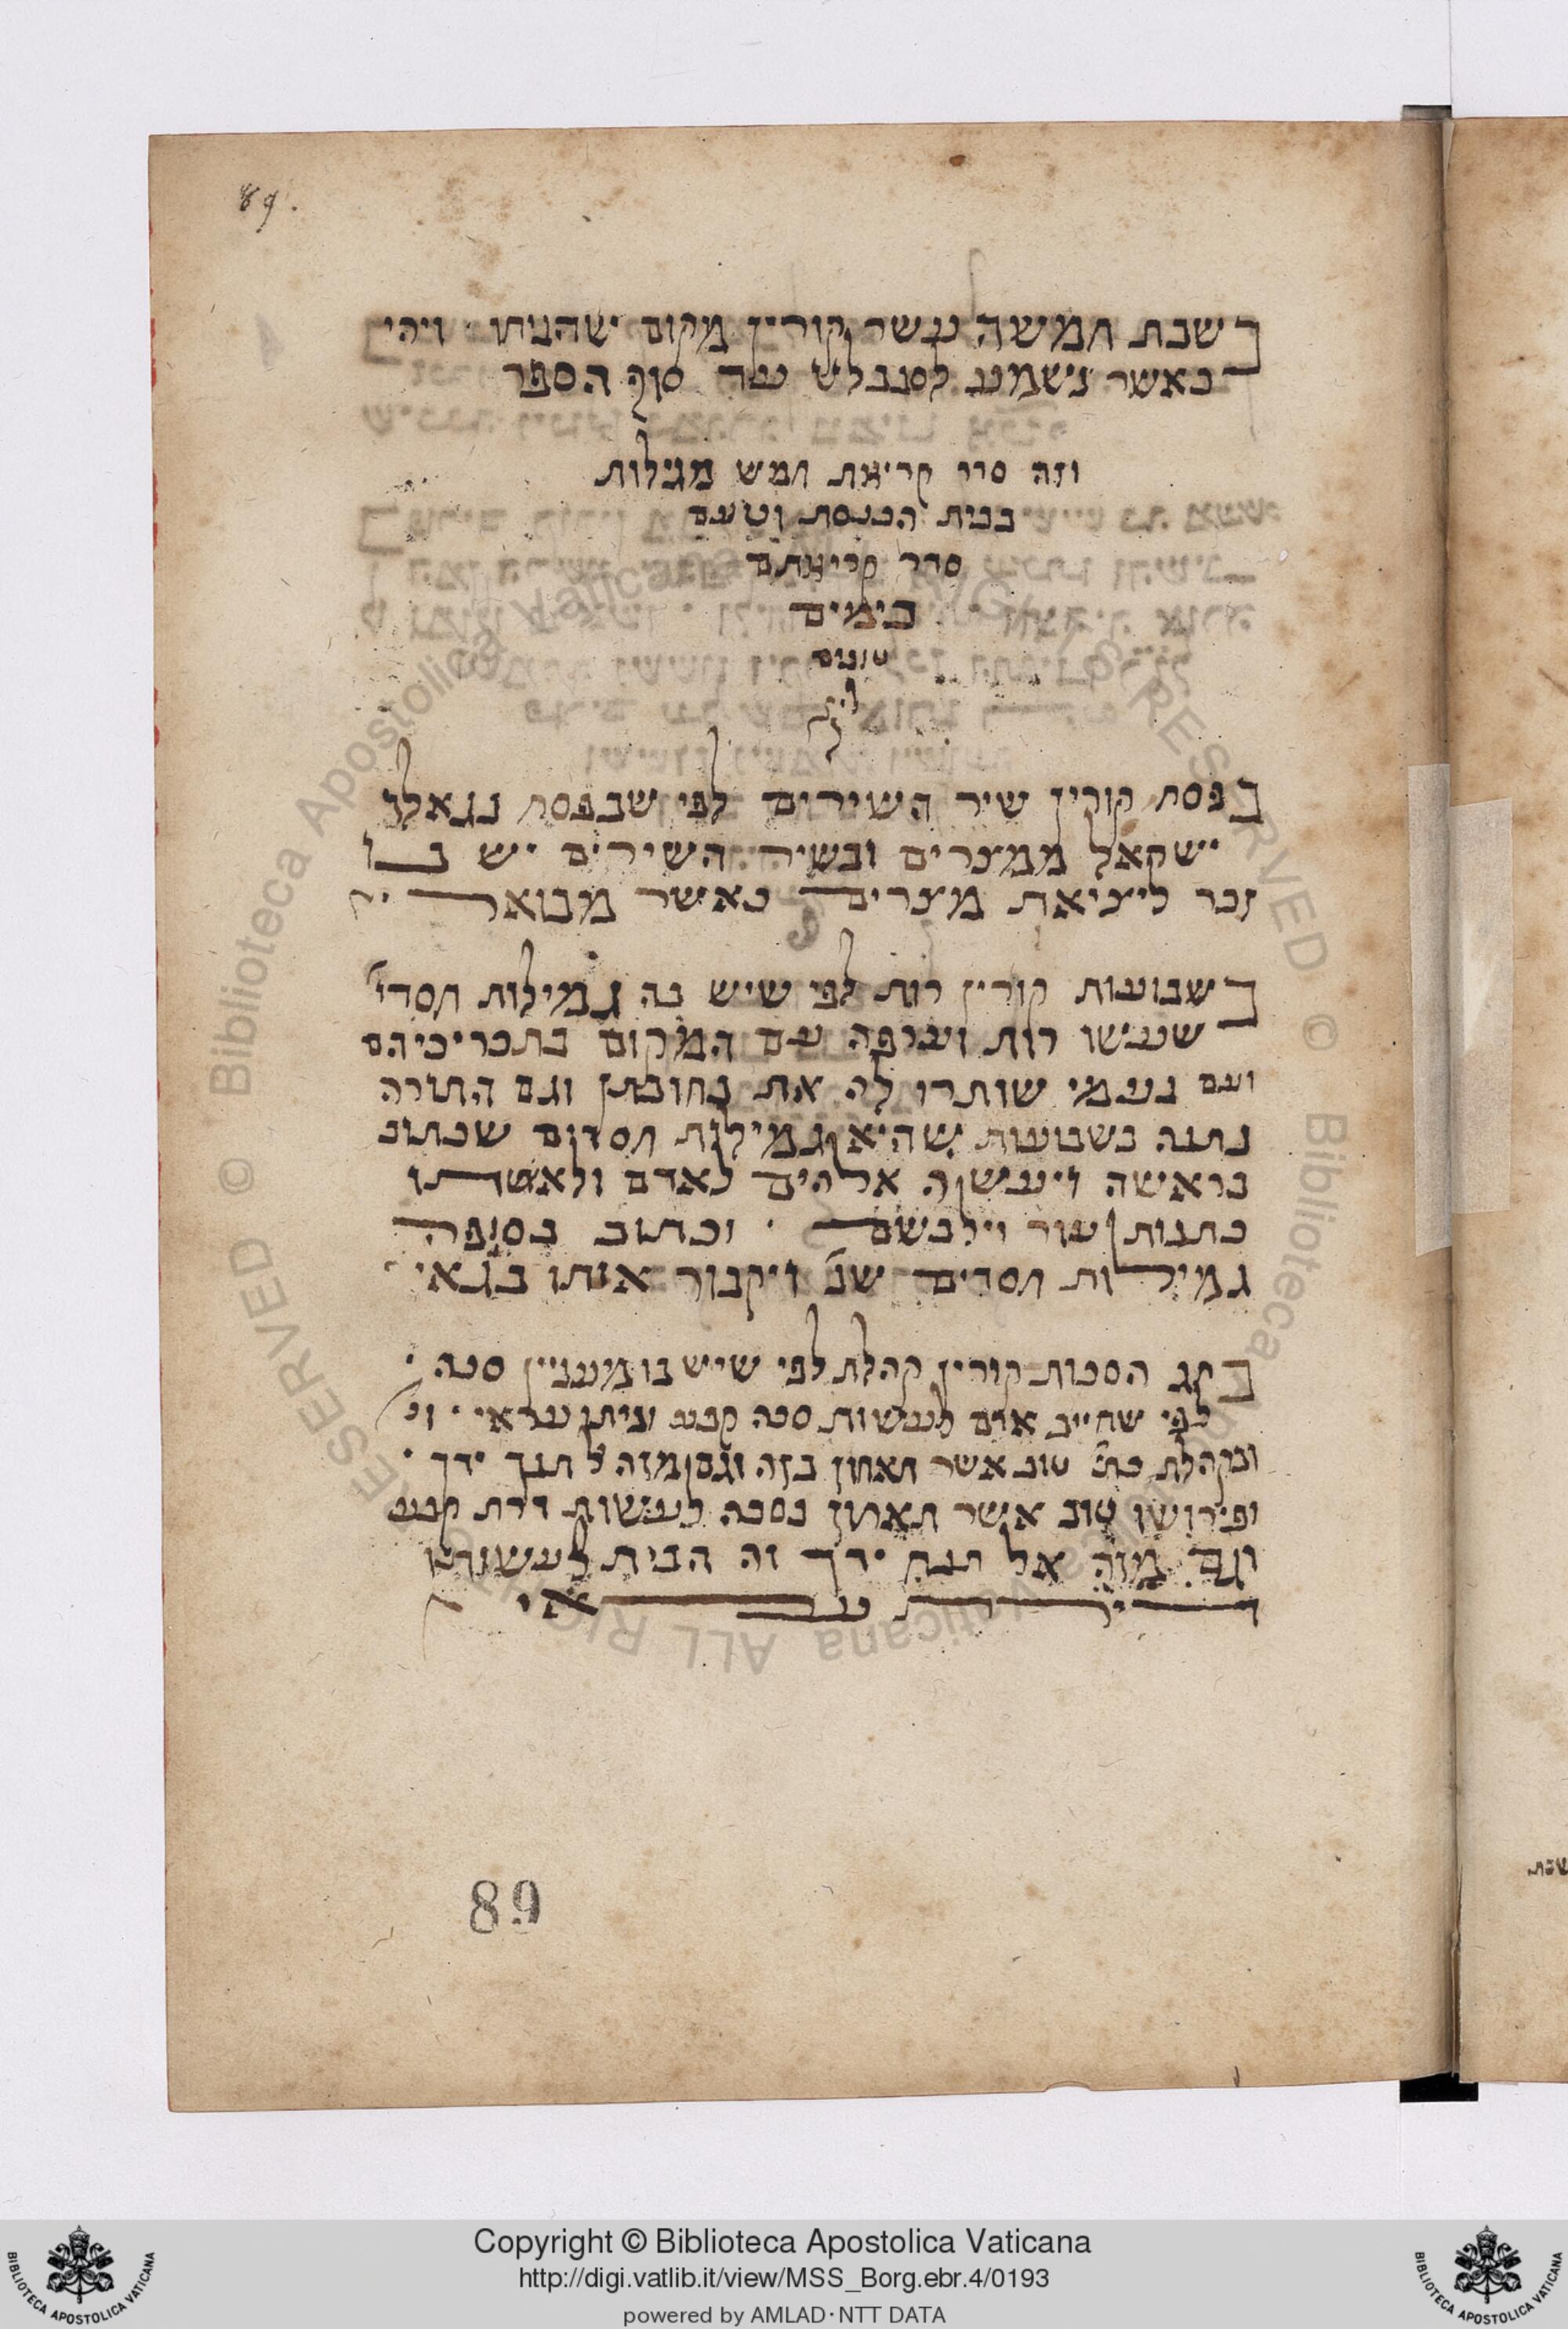 89.
בשבת חמשה עשר קורין מקום שהניחו ויהי
כאשר נשמע לסנבלט עד סוף הספר
וזה סדר קריאת חמש מגילות
בבית הכנסת וטעם
סדר קריאתם
בימים
טובים
בפסח קורין שיר השירים לפי שבפסח נגאלו
ישראל ממצרים ובשיר השירים יש בו
זכר ליציאת מצרים כאשר מבואר
בשבועות קורין רות לפי שיש בה גמילות חסדי׳
שעשו רות וערפה עם המקום בתכריכיהם
ועם נעמי שותרו לה את כתובתן וגם התורה
נתנה בשבועות שהיא גמילות חסדים שכתוב
בראשה ויעש אלהים לאדם ולאשתו
כתנות עור וילבשם · וכתוב בסופה
גמילות חסדים שנ׳ ויקבור אותו בגאי
בחג הסכות קורין קהלת לפי שיש בו מעניין סכה ·
לפי שחייב אדם לעשות סכה קבע וביתו עראי · וכ׳
ובקהלת כת׳ טוב אשר תאחוז בזה וגם מזה ל תנח ידך ·
ופירושו טוב אשר תאחוז בסכה לעשות דרת קבע
וגם מזה אל תנח ידך זה הבית לעשותו
דירת עראי
89
שבת
Copyright © Biblioteca Apostolica Vaticana
http://digi.vatlib.it/view/MSS_Borg.ebr.4/0193
powered by AMLAD·NTT DATA
BIBLIOTECA APOSTOLICA VATICANA
BIBLIOTECA APOSTOLICA VATICANA
© Biblioteca Apostolica Vaticana ALL RIGHTS RESERVED
© Biblioteca Apostolica Vaticana ALL RIGHTS RESERVED